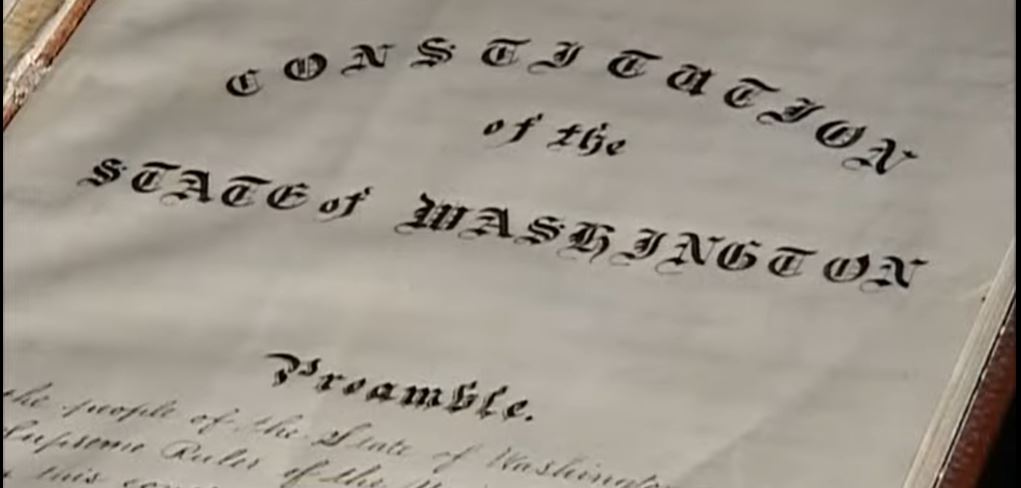 CONSTITUTION
of the
STATE of WASHINGTON
Preamble.
the people of the State of Washington
Supreme Ruler of the
this